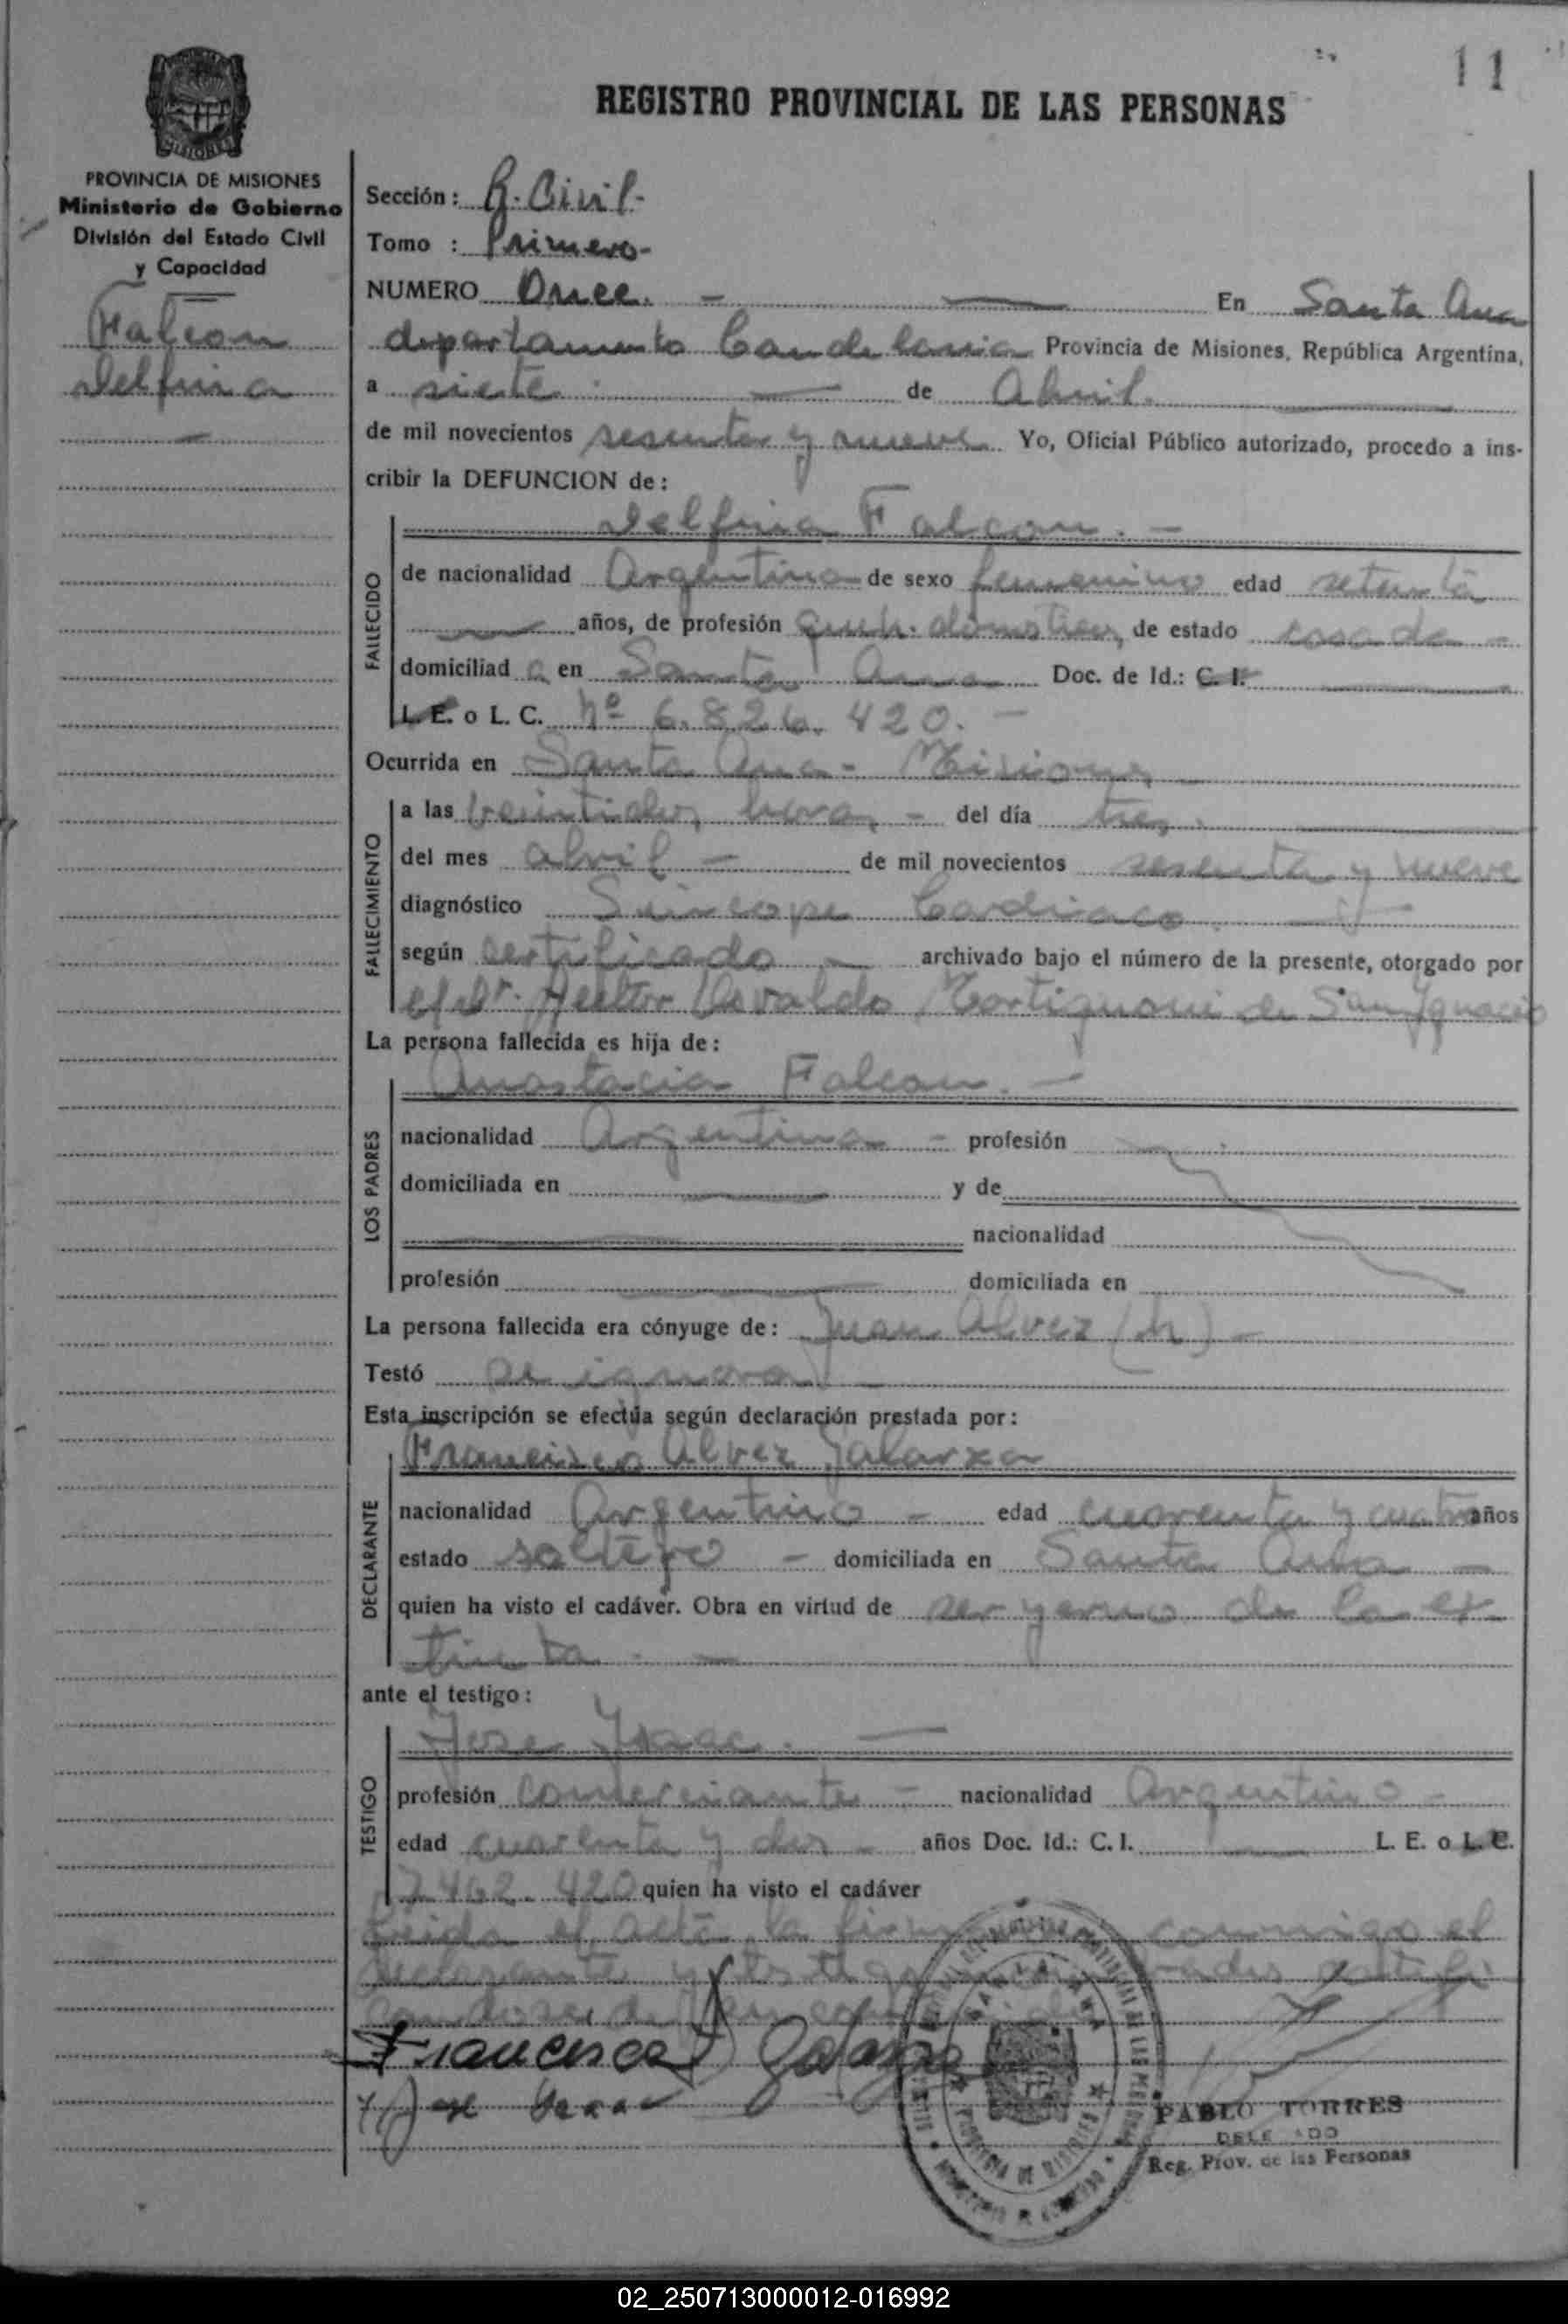 11
REGISTRO PROVINCIAL DE LAS PERSONAS
PROVINCIA DE MISIONES
Ministerio de Gobierno
División del Estado Civil
y Capacidad
Falcon
Delfina
Sección: R. Civil.-
Tomo : Primero-
NUMERO Once. - En Santa Ana
departamento Candelaria Provincia de Misiones, República Argentina,
a siete de Abril.
de mil novecientos sesenta y nueve Yo, Oficial Público autorizado, procedo a ins-
cribir la DEFUNCION de:
FALLECIDO
Delfina Falcon. -
de nacionalidad Argentina de sexo femenino edad setenta
años, de profesión queh. domesticos, de estado casada -
domiciliad a en Santa Ana Doc. de Id.: C. I.
L. E. o L. C. Nº 6.826.420. -
Ocurrida en Santa Ana - Misiones
FALLECIMIENTO
a las veintidos horas - del día tres.
del mes abril - de mil novecientos sesenta y nueve
diagnóstico Sincope Cardiaco.
según certificado - archivado bajo el número de la presente, otorgado por
el Dr. Hector Osvaldo Mortignoni de San Ignacio
La persona fallecida es hija de:
LOS PADRES
Anastacia Falcon. -
nacionalidad Argentina - profesión
domiciliada en y de
nacionalidad
profesión domiciliada en
La persona fallecida era cónyuge de: Juan Alvez (h) -
Testó se ignora -
Esta inscripción se efectúa según declaración prestada por:
DECLARANTE
Francisco Alvez Galarza
nacionalidad Argentino - edad cuarenta y cuatro años
estado soltero - domiciliada en Santa Ana -
quien ha visto el cadáver. Obra en virtud de ser yerno de la ex
tinta. -
ante el testigo:
TESTIGO
Jose Ysaac. -
profesión comerciante - nacionalidad Argentino -
edad cuarenta y dos - años Doc. Id.: C. I. L. E. o L. C.
7.462.420 quien ha visto el cadáver
Leida el acta, la firman conmigo el
declarante y testigo
Francisco A Galarza
Jose Ysaac
SANTA ANA
PROVINCIA DE MISIONES
PABLO TORRES
DELEGADO
Reg. Prov. de las Personas
02_250713000012-016992